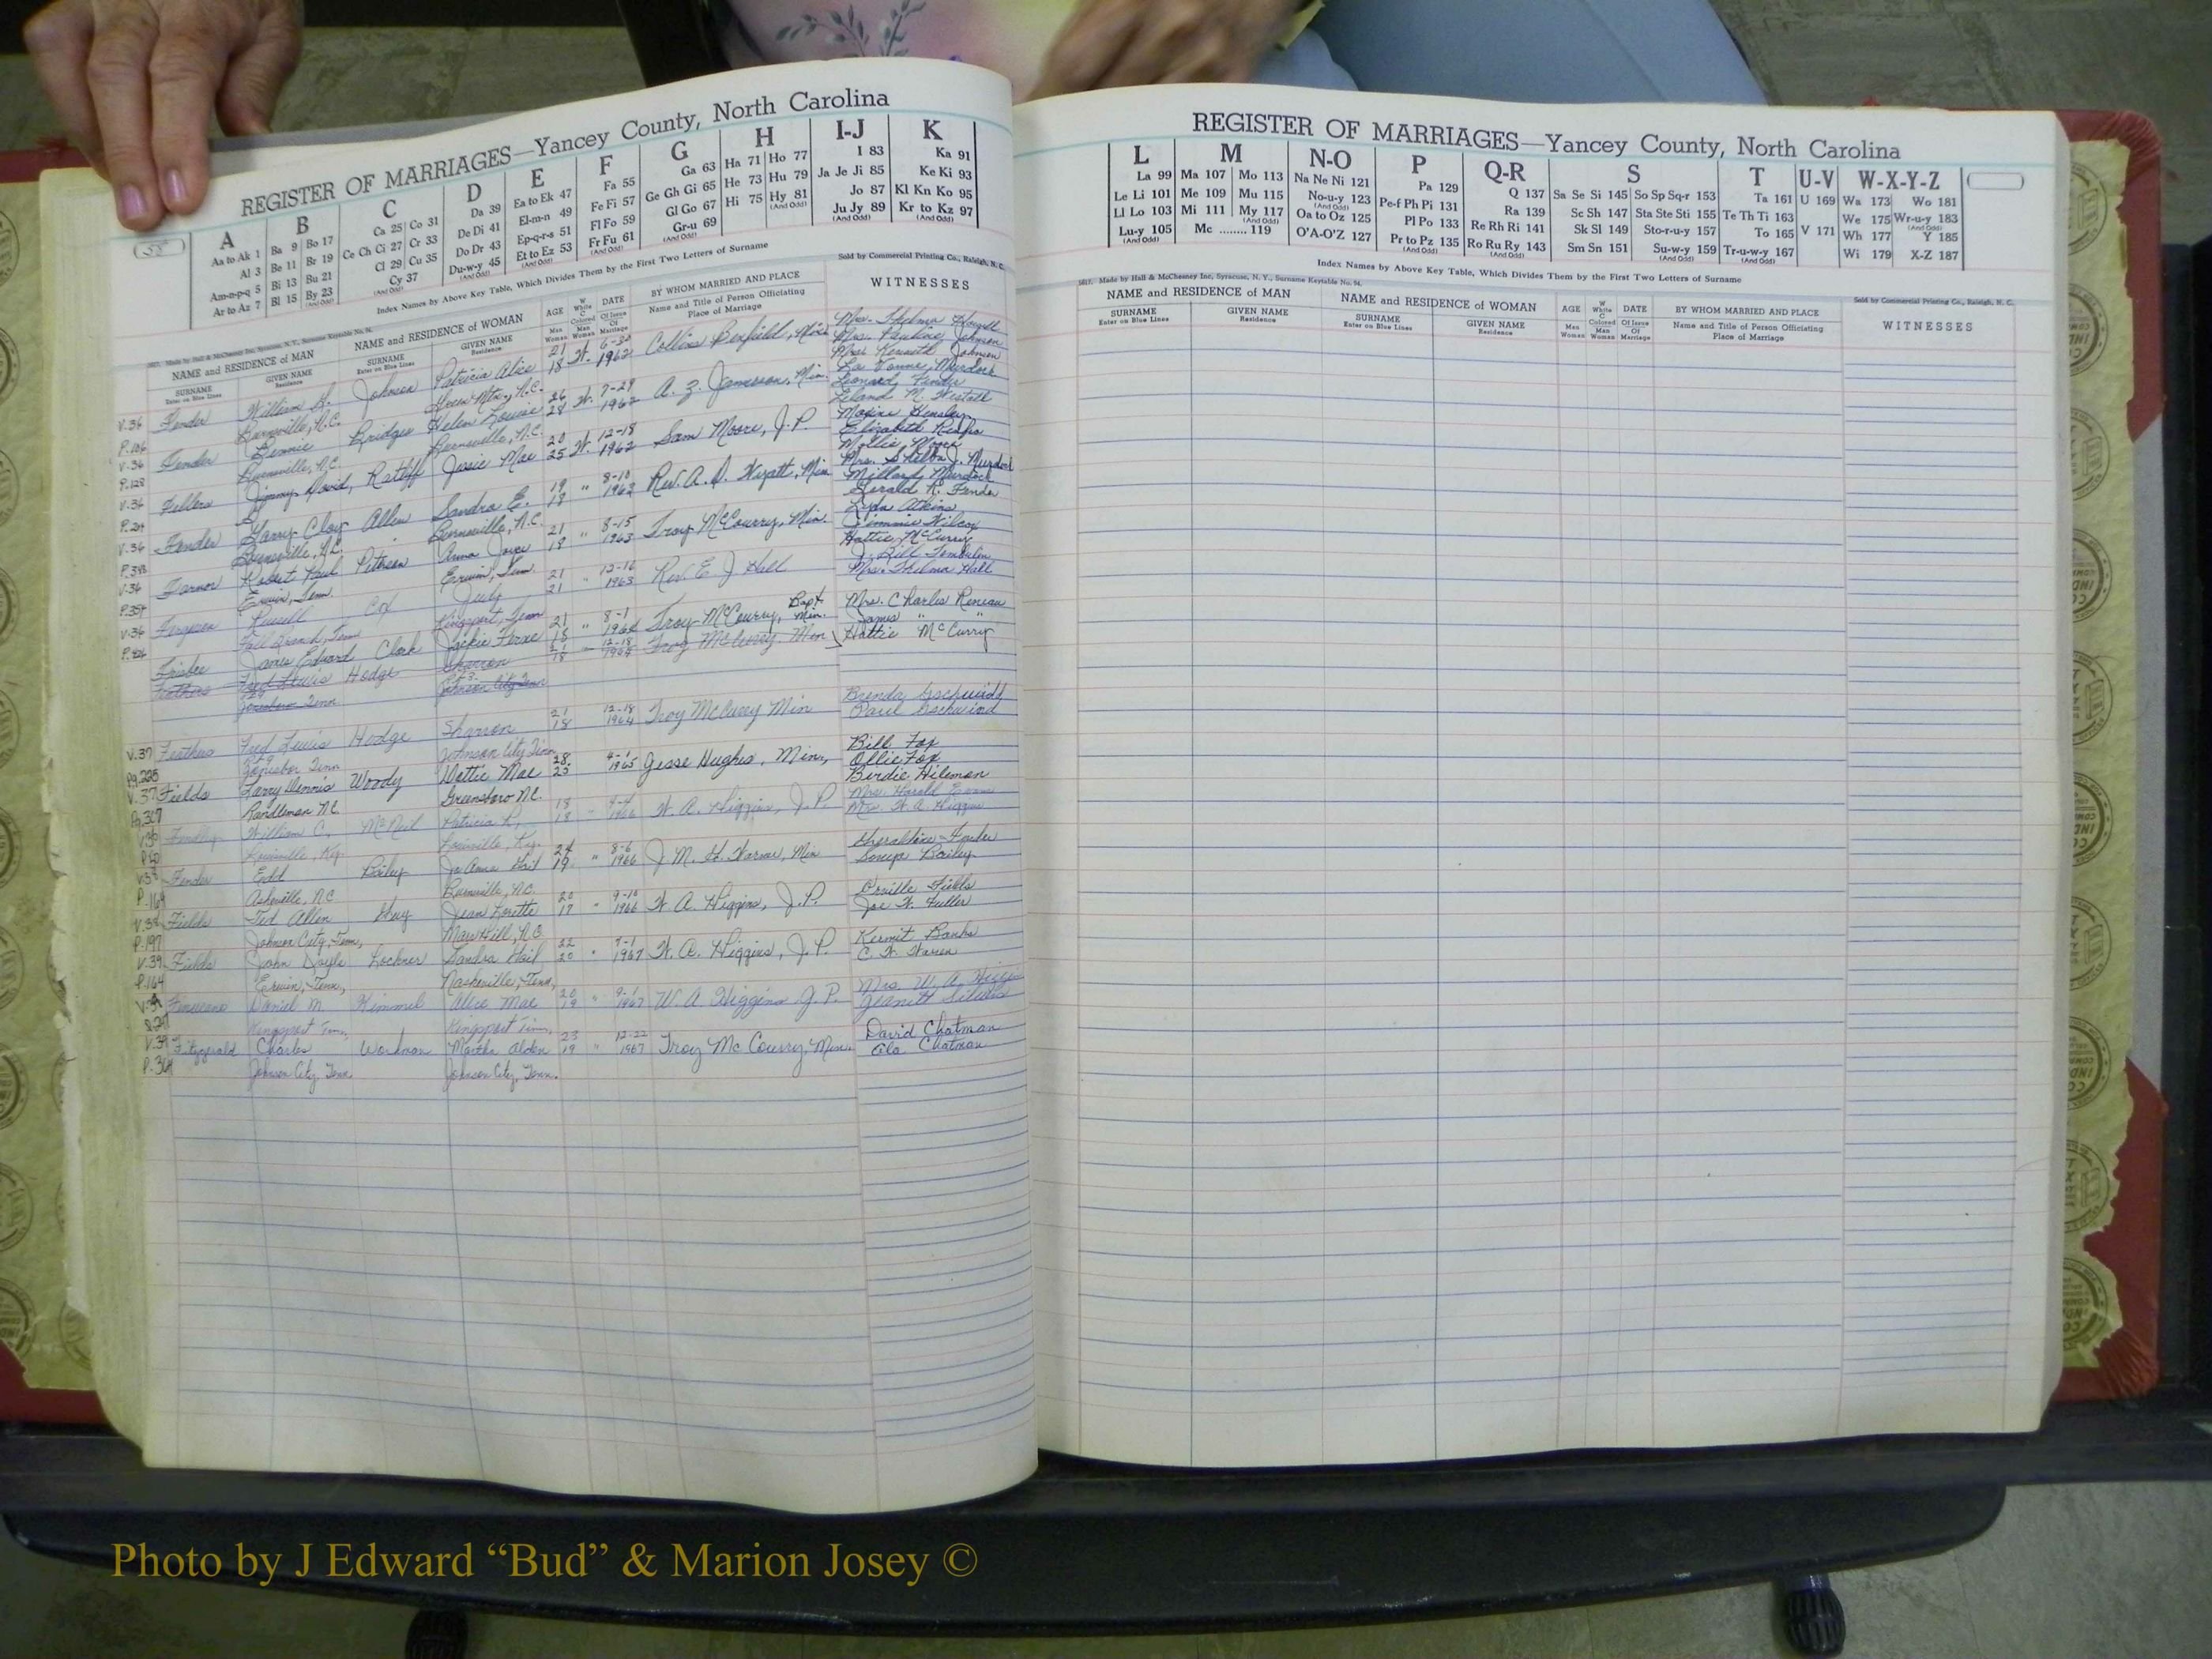 REGISTER OF MARRIAGES—Yancey County, North Carolina
58
A
Aa to Ak 1
Al 3
Am-n-p-q 5
Ar to Az 7
B
Ba 9 Bo 17
Be 11 Br 19
Bi 13 Bu 21
Bl 15 By 23
(And Odd)
C
Ca 25 Co 31
Ce Ch Ci 27 Cr 33
Cl 29 Cu 35
(And Odd) Cy 37
D
Da 39
De Di 41
Do Dr 43
Du-w-y 45
(And Odd)
E
Ea to Ek 47
El-m-n 49
Ep-q-r-s 51
Et to Ez 53
(And Odd)
F
Fa 55
Fe Fi 57
Fl Fo 59
Fr Fu 61
(And Odd)
G
Ga 63
Ge Gh Gi 65
Gl Go 67
Gr-u 69
(And Odd)
H
Ha 71 Ho 77
He 73 Hu 79
Hi 75 Hy 81
(And Odd)
I-J
I 83
Ja Je Ji 85
Jo 87
Ju Jy 89
(And Odd)
K
Ka 91
Ke Ki 93
Kl Kn Ko 95
Kr to Kz 97
(And Odd)
Index Names by Above Key Table, Which Divides Them by the First Two Letters of Surname
Sold by Commercial Printing Co., Raleigh, N. C.
NAME and RESIDENCE of MAN
SURNAME
Enter on Blue Lines
GIVEN NAME
Residence
NAME and RESIDENCE of WOMAN
SURNAME
Enter on Blue Lines
GIVEN NAME
Residence
AGE
Man
Woman
W
White
C
Colored
Man
Woman
DATE
Of Issue
Of
Marriage
BY WHOM MARRIED AND PLACE
Name and Title of Person Officiating
Place of Marriage
WITNESSES
V.36 Fender William H. Johnson Patricia Alice 21 W. 6-30 Collins Benfield, Mrs. Thelma Howell
P.106 Burnsville, N.C. Green Mtn., N.C. 18 1962 Mrs. Pauline Johnson
Mrs. Kenneth Johnson
V.36 Fender Bennie Bridges Helen Louise 26 W. 7-29 A. Z. Jamerson, Min. La Vonne Murdock
P.128 Burnsville, N.C. Burnsville, N.C. 28 1962 Leonard Fender
Leland M. Westall
V.36 Fellers Jimmy David Ratliff Jessie Mae 20 W. 12-18 Sam Moore, J.P. Maxine Hensley
25 1962 Elizabeth
Mollie Moore
V.36 Fender Harry Clay Allen Sandra E. 19 " 8-10 Rev. A. D. Wyatt, Min Mrs. Shelba J. Murdock
Burnsville, N.C. Burnsville, N.C. 18 1963 Millard Murdock
Gerald R. Fender
V.36 Farnor Robert Paul Peterson Anna Joice 21 " 8-15 Troy McCourry, Min. Lyda Atkins
P.354 Erwin, Tenn. Erwin, Tenn 18 1963 Jimmie Wilcox
Hattie McCurry
V.36 Ferguson Russell Cox Judy 21 " 12-16 Rev. E J Hall J. Bill
P.426 Fall Branch, Tenn Kingsport, Tenn 21 1963 Mrs. Thelma Hall
Frisbee James Edward Clark Jackie Ferne 21 " 8-1 Troy McCourry, Bapt. Min. Mrs. Charles Reneau
18 1964 James "
Feathers Fred Lewis Hodge Sharron 21 12-18 Troy McCurry Min Hattie McCurry
Rt 9 Rt 3 18 1964
Jonesboro Tenn Johnson City Tenn
V.37 Feathers Fred Lewis Hodge Sharron 21 12-18 Troy McCurry Min Brenda Gschwind
Pg.225 Rt 9 Johnson City Tenn 18 1964 Paul Gschwind
Jonesbor Tenn
V.37 Fields Larry Dennis Woody Dottie Mae 28 1965 Jesse Hughes, Min, Bill Fox
Pg.307 Randleman N.C. Greensboro N.C. 25 Ollie Fox
Birdie Hileman
Fendley William C. McNeil Patricia L. 18 - 1966 W. A. Higgins, J.P. Mrs. Harold
Louisville, Ky. Louisville, Ky. 18 Mrs. W. A. Higgins
V.38 Fender Edd Bailey Jo Anna Gail 24 " 8-6 J. M. H. Warner, Min Geraldine
P.164 Asheville, N.C Burnsville, N.C. 19 1966 Bailey
V.38 Fields Ted Allen Guy Jean Lorette 20 - 9-10 W. A. Higgins, J.P. Orville Fields
P.197 Johnson City, Tenn, Mars Hill, N.C. 17 1966 Joe W. Fuller
V.39 Fields John Doyle Lockner Sandra Gail 22 " 7-1 W. A. Higgins, J.P. Kermit Banks
P.164 Erwin, Tenn, Nashville, Tenn, 20 1967 C. W. Warren
V.39 Daniel M. Kimmel Alice Mae 20 " 9-1 W. A Higgins J.P. Mrs. W. A. Higgins
Kingsport Tenn, Kingsport Tenn, 19 1967
V.39 Fitzgerald Charles Workman Martha Alden 23 " 12-22 Troy McCourry, Min. David Chatman
Johnson City, Tenn. Johnson City, Tenn. 19 1967 Ala Chatman
REGISTER OF MARRIAGES—Yancey County, North Carolina
L
La 99
Le Li 101
Ll Lo 103
Lu-y 105
(And Odd)
M
Ma 107 Mo 113
Me 109 Mu 115
Mi 111 My 117
(And Odd)
Mc ........ 119
N-O
Na Ne Ni 121
No-u-y 123
(And Odd)
Oa to Oz 125
O'A-O'Z 127
P
Pa 129
Pe-f Ph Pi 131
Pl Po 133
Pr to Pz 135
(And Odd)
Q-R
Q 137
Ra 139
Re Rh Ri 141
Ro Ru Ry 143
S
Sa Se Si 145 So Sp Sq-r 153
Sc Sh 147 Sta Ste Sti 155
Sk Sl 149 Sto-r-u-y 157
Sm Sn 151 Su-w-y 159
(And Odd)
T
Ta 161
Te Th Ti 163
To 165
Tr-u-w-y 167
(And Odd)
U-V
U 169
V 171
W-X-Y-Z
Wa 173 Wo 181
We 175 Wr-u-y 183
(And Odd)
Wh 177 Y 185
Wi 179 X-Z 187
Index Names by Above Key Table, Which Divides Them by the First Two Letters of Surname
Made by Hall & McChesney Inc, Syracuse, N. Y., Surname Keytable No. 94.
Sold by Commercial Printing Co., Raleigh, N. C.
NAME and RESIDENCE of MAN
SURNAME
Enter on Blue Lines
GIVEN NAME
Residence
NAME and RESIDENCE of WOMAN
SURNAME
Enter on Blue Lines
GIVEN NAME
Residence
AGE
Man
Woman
W
White
C
Colored
Man
Woman
DATE
Of Issue
Of
Marriage
BY WHOM MARRIED AND PLACE
Name and Title of Person Officiating
Place of Marriage
WITNESSES
Photo by J Edward “Bud” & Marion Josey ©